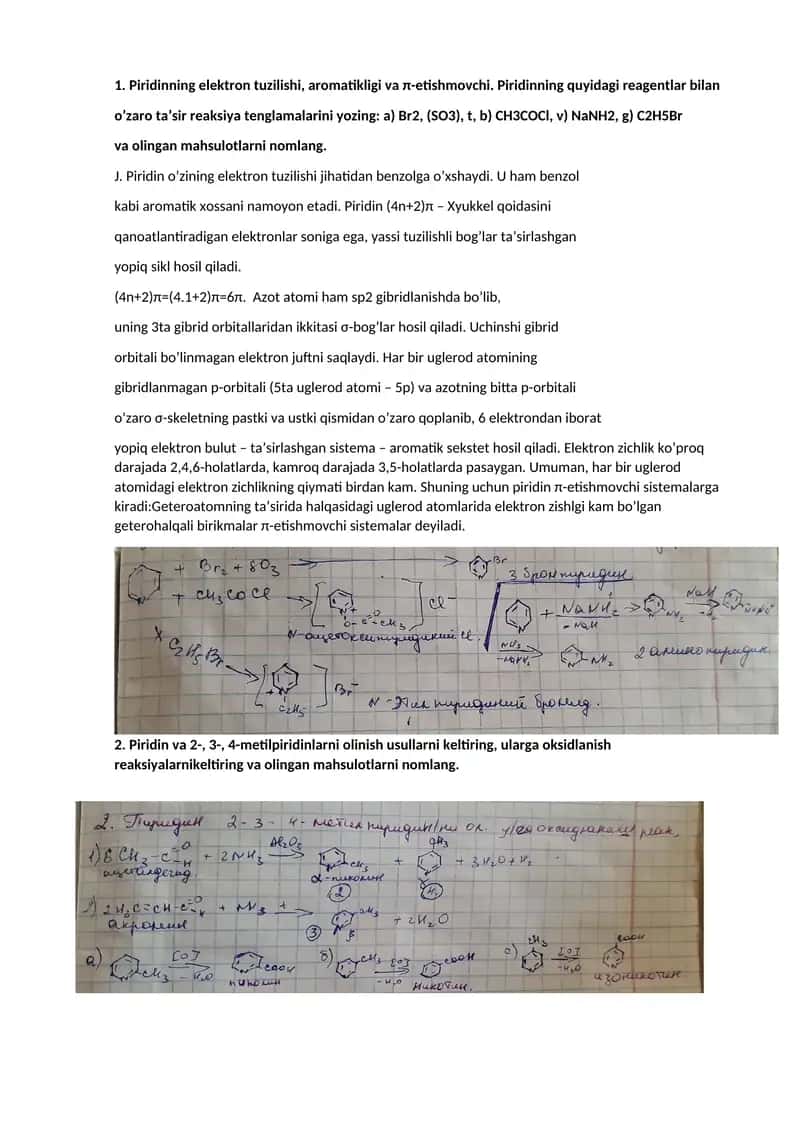 1. Piridinning elektron tuzilishi, aromatikligi va π-etishmovchi. Piridinning quyidagi reagentlar bilan
o’zaro ta’sir reaksiya tenglamalarini yozing: a) Br2, (SO3), t, b) CH3COCl, v) NaNH2, g) C2H5Br
va olingan mahsulotlarni nomlang.
J. Piridin o’zining elektron tuzilishi jihatidan benzolga o’xshaydi. U ham benzol
kabi aromatik xossani namoyon etadi. Piridin (4n+2)π – Xyukkel qoidasini
qanoatlantiradigan elektronlar soniga ega, yassi tuzilishli bog’lar ta’sirlashgan
yopiq sikl hosil qiladi.
(4n+2)π=(4.1+2)π=6π. Azot atomi ham sp2 gibridlanishda bo’lib,
uning 3ta gibrid orbitallaridan ikkitasi σ-bog’lar hosil qiladi. Uchinshi gibrid
orbitali bo’linmagan elektron juftni saqlaydi. Har bir uglerod atomining
gibridlanmagan p-orbitali (5ta uglerod atomi – 5p) va azotning bitta p-orbitali
o’zaro σ-skeletning pastki va ustki qismidan o’zaro qoplanib, 6 elektrondan iborat
yopiq elektron bulut – ta’sirlashgan sistema – aromatik sekstet hosil qiladi. Elektron zichlik ko’proq
darajada 2,4,6-holatlarda, kamroq darajada 3,5-holatlarda pasaygan. Umuman, har bir uglerod
atomidagi elektron zichlikning qiymati birdan kam. Shuning uchun piridin π-etishmovchi sistemalarga
kiradi:Geteroatomning ta’sirida halqasidagi uglerod atomlarida elektron zishlgi kam bo’lgan
geterohalqali birikmalar π-etishmovchi sistemalar deyiladi.
+ Br2 + SO3 Br
3 бромпиридин
+ CH3COCl Cl⁻
+ NaNH2 NH2 NaH
- NaH
O-C-CH3
N-ацетоксипиридиний Cl.
NH2 2 аминопиридин.
C2H5Br Br⁻
C2H5
N-Этил пиридиний бромид.
2. Piridin va 2-, 3-, 4-metilpiridinlarni olinish usullarni keltiring, ularga oksidlanish
reaksiyalarnikeltiring va olingan mahsulotlarni nomlang.
2. Пиридин 2-3-4-метил пиридин
CH3
1) 6 CH3-C=O H + 2NH3 Al2O3 CH3 + + 3H2O + H2
ацетилдегид. α-пиколин
2) 2H2C=CH-C=O H + NH3 CH3 + 2H2O
Акролеин 3 β
а) CH3 [O] -H2O COOH б) CH3 [O] -H2O COOH с) CH3 [O] -H2O COOH
пиколин никотин. изоникотин